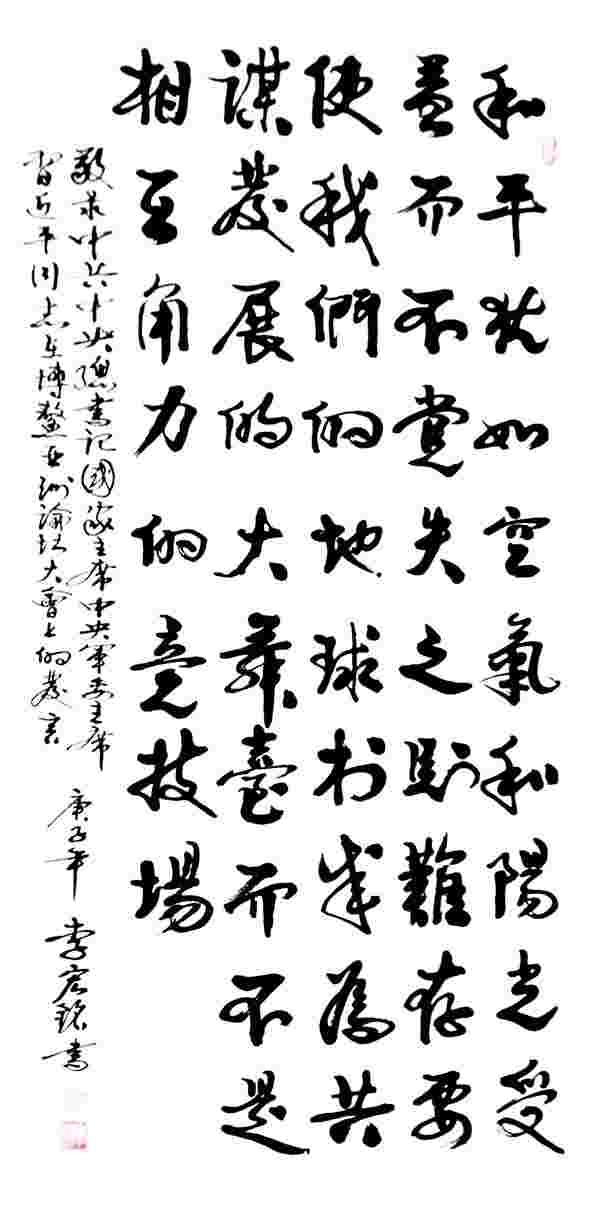 和平犹如空氣和陽光受
益而不覺失之則難存要
使我們的地球村成為共
謀發展的大舞臺而不是
相互角力的竞技場
敬录中共中央總書记國家主席中央軍委主席
習近平同志在博鰲亞洲論坛大會上的發言
庚子年 李宏銘書